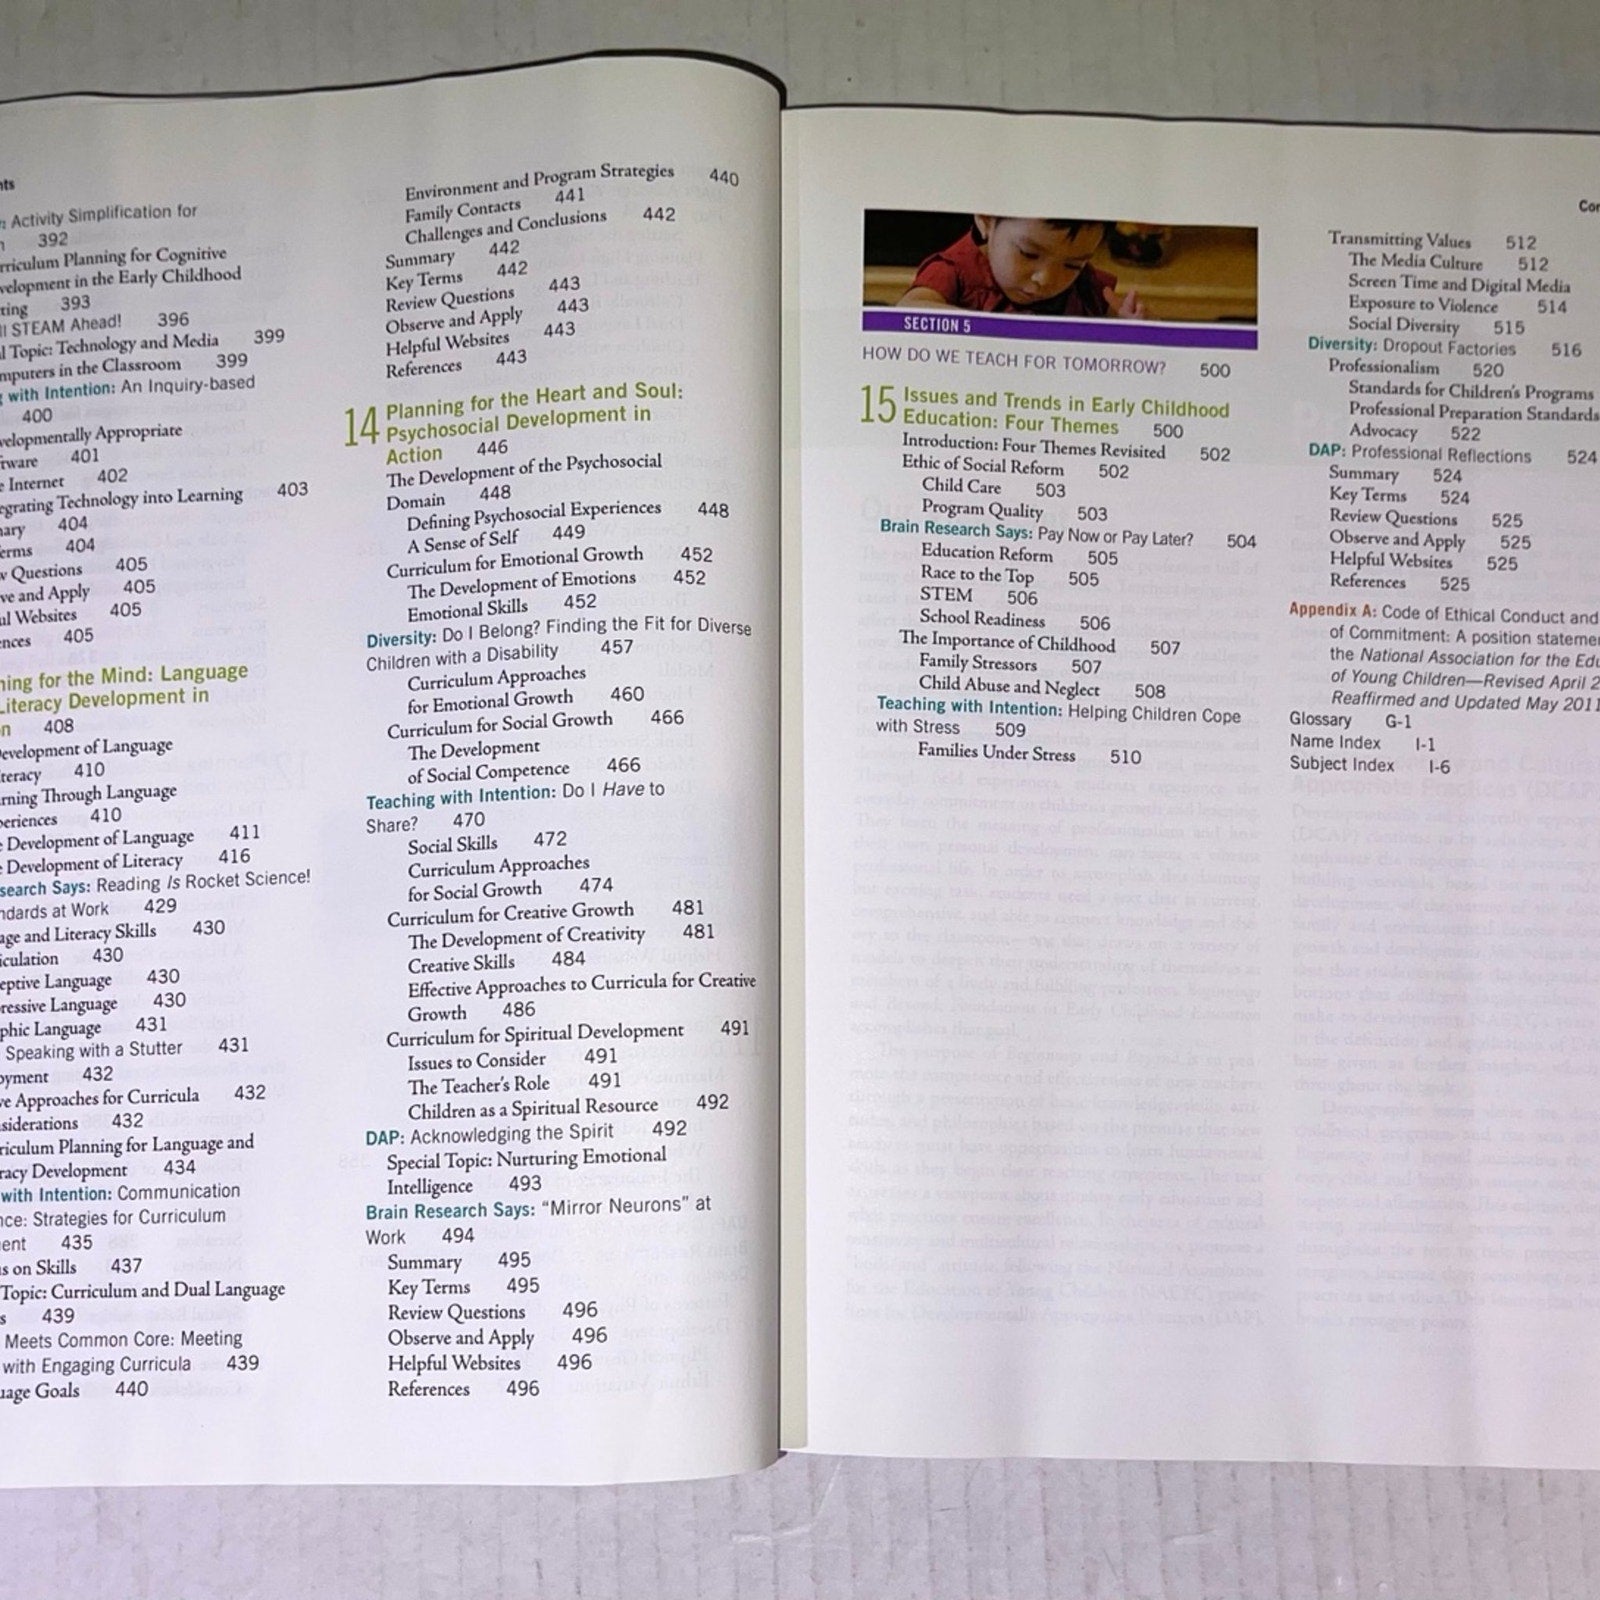 nts
: Activity Simplification for
392
rriculum Planning for Cognitive
velopment in the Early Childhood
ting 393
ll STEAM Ahead! 396
l Topic: Technology and Media 399
mputers in the Classroom 399
with Intention: An Inquiry-based
400
velopmentally Appropriate
tware 401
e Internet 402
egrating Technology into Learning 403
ary 404
erms 404
w Questions 405
ve and Apply 405
ul Websites 405
ences 405
ning for the Mind: Language
Literacy Development in
n 408
evelopment of Language
teracy 410
rning Through Language
periences 410
e Development of Language 411
e Development of Literacy 416
search Says: Reading Is Rocket Science!
ndards at Work 429
age and Literacy Skills 430
iculation 430
eptive Language 430
pressive Language 430
phic Language 431
Speaking with a Stutter 431
oyment 432
ve Approaches for Curricula 432
siderations 432
riculum Planning for Language and
racy Development 434
with Intention: Communication
nce: Strategies for Curriculum
ent 435
s on Skills 437
Topic: Curriculum and Dual Language
s 439
Meets Common Core: Meeting
with Engaging Curricula 439
uage Goals 440
Environment and Program Strategies 440
Family Contacts 441
Challenges and Conclusions 442
Summary 442
Key Terms 442
Review Questions 443
Observe and Apply 443
Helpful Websites 443
References 443
14 Planning for the Heart and Soul:
Psychosocial Development in
Action 446
The Development of the Psychosocial
Domain 448
Defining Psychosocial Experiences 448
A Sense of Self 449
Curriculum for Emotional Growth 452
The Development of Emotions 452
Emotional Skills 452
Diversity: Do I Belong? Finding the Fit for Diverse
Children with a Disability 457
Curriculum Approaches
for Emotional Growth 460
Curriculum for Social Growth 466
The Development
of Social Competence 466
Teaching with Intention: Do I Have to
Share? 470
Social Skills 472
Curriculum Approaches
for Social Growth 474
Curriculum for Creative Growth 481
The Development of Creativity 481
Creative Skills 484
Effective Approaches to Curricula for Creative
Growth 486
Curriculum for Spiritual Development 491
Issues to Consider 491
The Teacher's Role 491
Children as a Spiritual Resource 492
DAP: Acknowledging the Spirit 492
Special Topic: Nurturing Emotional
Intelligence 493
Brain Research Says: "Mirror Neurons" at
Work 494
Summary 495
Key Terms 495
Review Questions 496
Observe and Apply 496
Helpful Websites 496
References 496
SECTION 5
HOW DO WE TEACH FOR TOMORROW? 500
15 Issues and Trends in Early Childhood
Education: Four Themes 500
Introduction: Four Themes Revisited 502
Ethic of Social Reform 502
Child Care 503
Program Quality 503
Brain Research Says: Pay Now or Pay Later? 504
Education Reform 505
Race to the Top 505
STEM 506
School Readiness 506
The Importance of Childhood 507
Family Stressors 507
Child Abuse and Neglect 508
Teaching with Intention: Helping Children Cope
with Stress 509
Families Under Stress 510
Con
Transmitting Values 512
The Media Culture 512
Screen Time and Digital Media
Exposure to Violence 514
Social Diversity 515
Diversity: Dropout Factories 516
Professionalism 520
Standards for Children's Programs
Professional Preparation Standards
Advocacy 522
DAP: Professional Reflections 524
Summary 524
Key Terms 524
Review Questions 525
Observe and Apply 525
Helpful Websites 525
References 525
Appendix A: Code of Ethical Conduct and
of Commitment: A position stateme
the National Association for the Edu
of Young Children—Revised April 2
Reaffirmed and Updated May 2011
Glossary G-1
Name Index I-1
Subject Index I-6